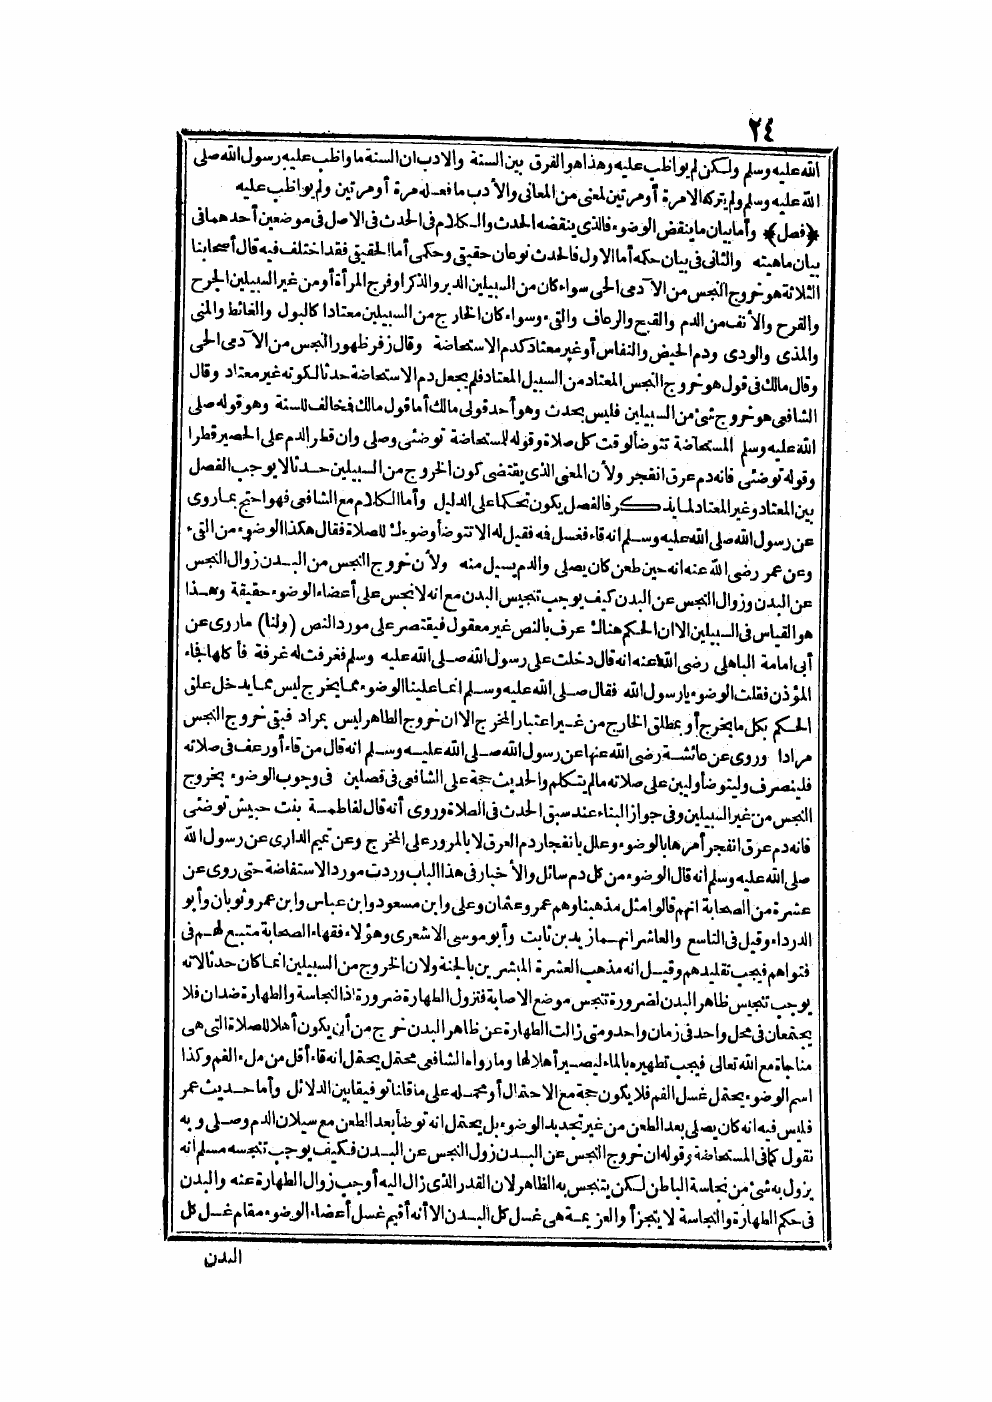 ٢٤
الله عليه وسلم ولكن لم يواظب عليه وهذا هو الفرق بين السنة والادب ان السنة ما واظب عليه رسول الله صلى
الله عليه وسلم ولم يتركه الا مرة أو مرتين لمعنى من المعانى والأدب ما فعله مرة أو مرتين ولم يواظب عليه
﴿فصل﴾ وأما بيان ما ينقض الوضوء فالذى ينقضه الحدث والكلام فى الحدث فى الاصل فى موضعين أحدهما فى
بيان ماهيته والثانى فى بيان حكمه أما الاول فالحدث نوعان حقيقى وحكمى أما الحقيقى فقد اختلف فيه قال أصحابنا
الثلاثة هو خروج النجس من الآدمى الحى سواء كان من السبيلين الدبر والذكر او فرج المرأة أو من غير السبيلين الجرح
والقرح والأنف من الدم والقيح والرعاف والقىء وسواء كان الخارج من السبيلين معتادا كالبول والغائط والمنى
والمذى والودى ودم الحيض والنفاس أو غير معتاد كدم الاستحاضة وقال زفر ظهور النجس من الآدمى الحى
وقال مالك فى قول هو خروج النجس المعتاد من السبيل المعتاد فلم يجعل دم الاستحاضة حدثا لكونه غير معتاد وقال
الشافعى هو خروج شىء من السبيلين فليس بحدث وهو أحد قولى مالك أما قول مالك فمخالف للسنة وهو قوله صلى
الله عليه وسلم المستحاضة تتوضأ لوقت كل صلاة وقوله للمستحاضة توضئى وصلى وان قطر الدم على الحصير قطرا
وقوله توضئى فانه دم عرق انفجر ولأن المعنى الذى يقتضى كون الخروج من السبيلين حدثا لا يوجب الفصل
بين المعتاد وغير المعتاد لما يذكر فالفصل يكون تحكما على الدليل وأما الكلام مع الشافعى فهو احتج بما روى
عن رسول الله صلى الله عليه وسلم انه قاء فغسل فمه فقيل له الا تتوضأ وضوءك للصلاة فقال هكذا الوضوء من القىء
وعن عمر رضى الله عنه انه حين طعن كان يصلى والدم يسيل منه ولأن خروج النجس من البدن زوال النجس
عن البدن وزوال النجس عن البدن كيف يوجب تنجيس البدن مع انه لا نجس على أعضاء الوضوء حقيقة وهذا
هو القياس فى السبيلين الا ان الحكم هناك عرف بالنص غير معقول فيقتصر على مورد النص (ولنا) ما روى عن
أبى امامة الباهلى رضى الله عنه انه قال دخلت على رسول الله صلى الله عليه وسلم فغرفت له غرفة فأكلها فجاء
المؤذن فقلت الوضوء يا رسول الله فقال صلى الله عليه وسلم انما علينا الوضوء مما يخرج ليس مما يدخل علق
الحكم بكل ما يخرج أو بمطلق الخارج من غير اعتبار المخرج الا ان خروج الطاهر ليس بمراد فبقى خروج النجس
مرادا وروى عن عائشة رضى الله عنها عن رسول الله صلى الله عليه وسلم انه قال من قاء أو رعف فى صلاته
فلينصرف وليتوضأ وليبن على صلاته ما لم يتكلم والحديث حجة على الشافعى فى فصلين فى وجوب الوضوء بخروج
النجس من غير السبيلين وفى جواز البناء عند سبق الحدث فى الصلاة وروى أنه قال لفاطمة بنت حبيش توضئى
فانه دم عرق انفجر أمرها بالوضوء وعلل بانفجار دم العرق لا بالمرور على المخرج وعن تميم الدارى عن رسول الله
صلى الله عليه وسلم انه قال الوضوء من كل دم سائل والأخبار فى هذا الباب وردت مورد الاستفاضة حتى روى عن
عشرة من الصحابة انهم قالوا مثل مذهبنا وهم عمر وعثمان وعلى وابن مسعود وابن عباس وابن عمر وثوبان وأبو
الدرداء وقيل فى التاسع والعاشر انهما زيد بن ثابت وأبو موسى الاشعرى وهؤلاء فقهاء الصحابة متبع لهم فى
فتواهم فيجب تقليدهم وقيل انه مذهب العشرة المبشرين بالجنة ولان الخروج من السبيلين انما كان حدثا لانه
يوجب تنجيس ظاهر البدن لضرورة تنجس موضع الاصابة فتزول الطهارة ضرورة اذ النجاسة والطهارة ضدان فلا
يجتمعان فى محل واحد فى زمان واحد ومتى زالت الطهارة عن ظاهر البدن خرج من أن يكون أهلا للصلاة التى هى
مناجاة مع الله تعالى فيجب تطهيره بالماء ليصير أهلا لها وما رواه الشافعى محتمل يحتمل انه قاء أقل من ملء الفم وكذا
اسم الوضوء يحتمل غسل الفم فلا يكون حجة مع الاحتمال أو نحمله على ما قلنا توفيقا بين الدلائل وأما حديث عمر
فليس فيه انه كان يصلى بعد الطعن من غير تجديد الوضوء بل يحتمل انه توضأ بعد الطعن مع سيلان الدم وصلى وبه
نقول كما فى المستحاضة وقوله ان خروج النجس عن البدن زول النجس عن البدن فكيف يوجب تنجسه مسلم انه
يزول به شىء من نجاسة الباطن لكن يتنجس به الظاهر لان القدر الذى زال اليه أوجب زوال الطهارة عنه والبدن
فى حكم الطهارة والنجاسة لا يتجزأ والعزيمة هى غسل كل البدن الا أنه أقيم غسل أعضاء الوضوء مقام غسل كل
البدن